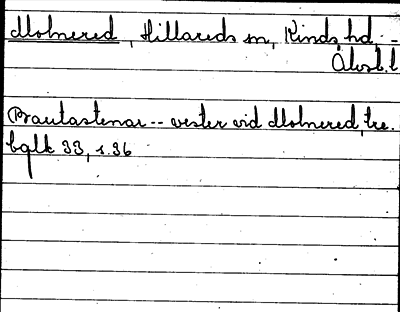 Molnered, Hillareds sn, Kinds hd. -
Älvsb. l
Brautastenar -- vester vid Molnered, se.
bglk 33, s. 36